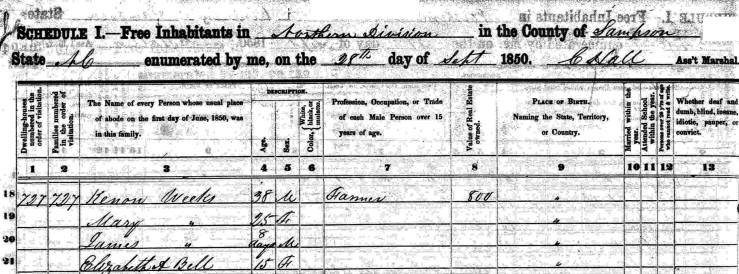 SCHEDULE I.—Free Inhabitants in Northern Division in the County of Sampson
State NC enumerated by me, on the 28th day of Sept 1850. C Hall Ass't Marshal.
Dwelling-houses numbered in the order of visitation.
Families numbered in the order of visitation.
The Name of every Person whose usual place of abode on the first day of June, 1850, was in this family.
DESCRIPTION.
Age.
Sex.
White, black, or mulatto. Color,
Profession, Occupation, or Trade of each Male Person over 15 years of age.
Value of Real Estate owned.
PLACE OF BIRTH. Naming the State, Territory, or Country.
Married within the year.
Attended School within the year.
Whether deaf and dumb, blind, insane, idiotic, pauper, or convict.
1 2 3 4 5 6 7 8 9 10 11 12 13
18 727 727 Kenon Weeks 38 M Farmer 800 "
19 Mary " 25 F "
20 James " 8 days M "
21 Elizabeth A Bell 15 F "